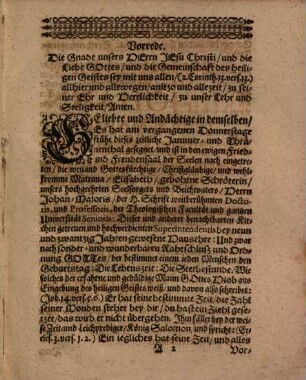 Vorrede.
Die Gnade unsers HErrn JEsu Christi/ und die
Liebe GOttes/ und die Gemeinschaft des heili-
gen Geistes sey mit uns allen/ (2. Corinth. 13. vers. 13.)
allhier und allewegen/ anitzo und allezeit/ zu sei-
ner Ehr und Herrlichkeit/ zu unser Lehr und
Seeligkeit/ Amen.
GEliebte und Andächtige in demselben/
Es hat am vergangenen Donnerstage
frühe dieses zeitliche Jammer- und Thrä-
nenthal gesegnet/ und ist in den ewigen Frieden
und Freudensaal der Seelen nach eingetre-
ten/ die weiland Gottesfürchtige/ Christglaubige/ und wohl-
fromme Matrona/ Elisabeth/ gebohrne Schröterin/
unsers hochgeehrten Seelsorgers und Beichtvaters/ HErrn
Johan. Majoris, der H. Schrift weitberühmten Docto-
ris, und Professoris, der Theologischen Facultät und gantzen
Universität Senioris: Dieser und anderer benachbarten Kirche-
en getreuen und hochverdienten Superintendentis bey neun
und zwantzig Jahren gewesene Hausehre: Und zwar
nach sonder- und wunderbaren Rahtschluß und Ord-
nung GOTTES/ der bestimmet einem ieden Menschen den
Geburtstag: Die Lebenszeit: Die Sterbestunde. Wie
solches der erfahrne und gedultige Mann GOttes Hiob aus
Eingebung des heiligen Geistes weiß/ und davon also schreibet:
(Job. 14. vers. 5. 6.) Er hat seine bestimte Zeit/ die Zahl
seiner Monden stehet bey dir/ du hast ein Ziehl gese-
tzet/ das wird er nicht übergehen. Ihm fället bey der wei-
se Zeit und Leichprediger/ König Salomon/ und spricht: (Ec-
cles. 3. vers. 1. 2.) Ein iegliches hat seine Zeit/ und alles
A 2 Vor-